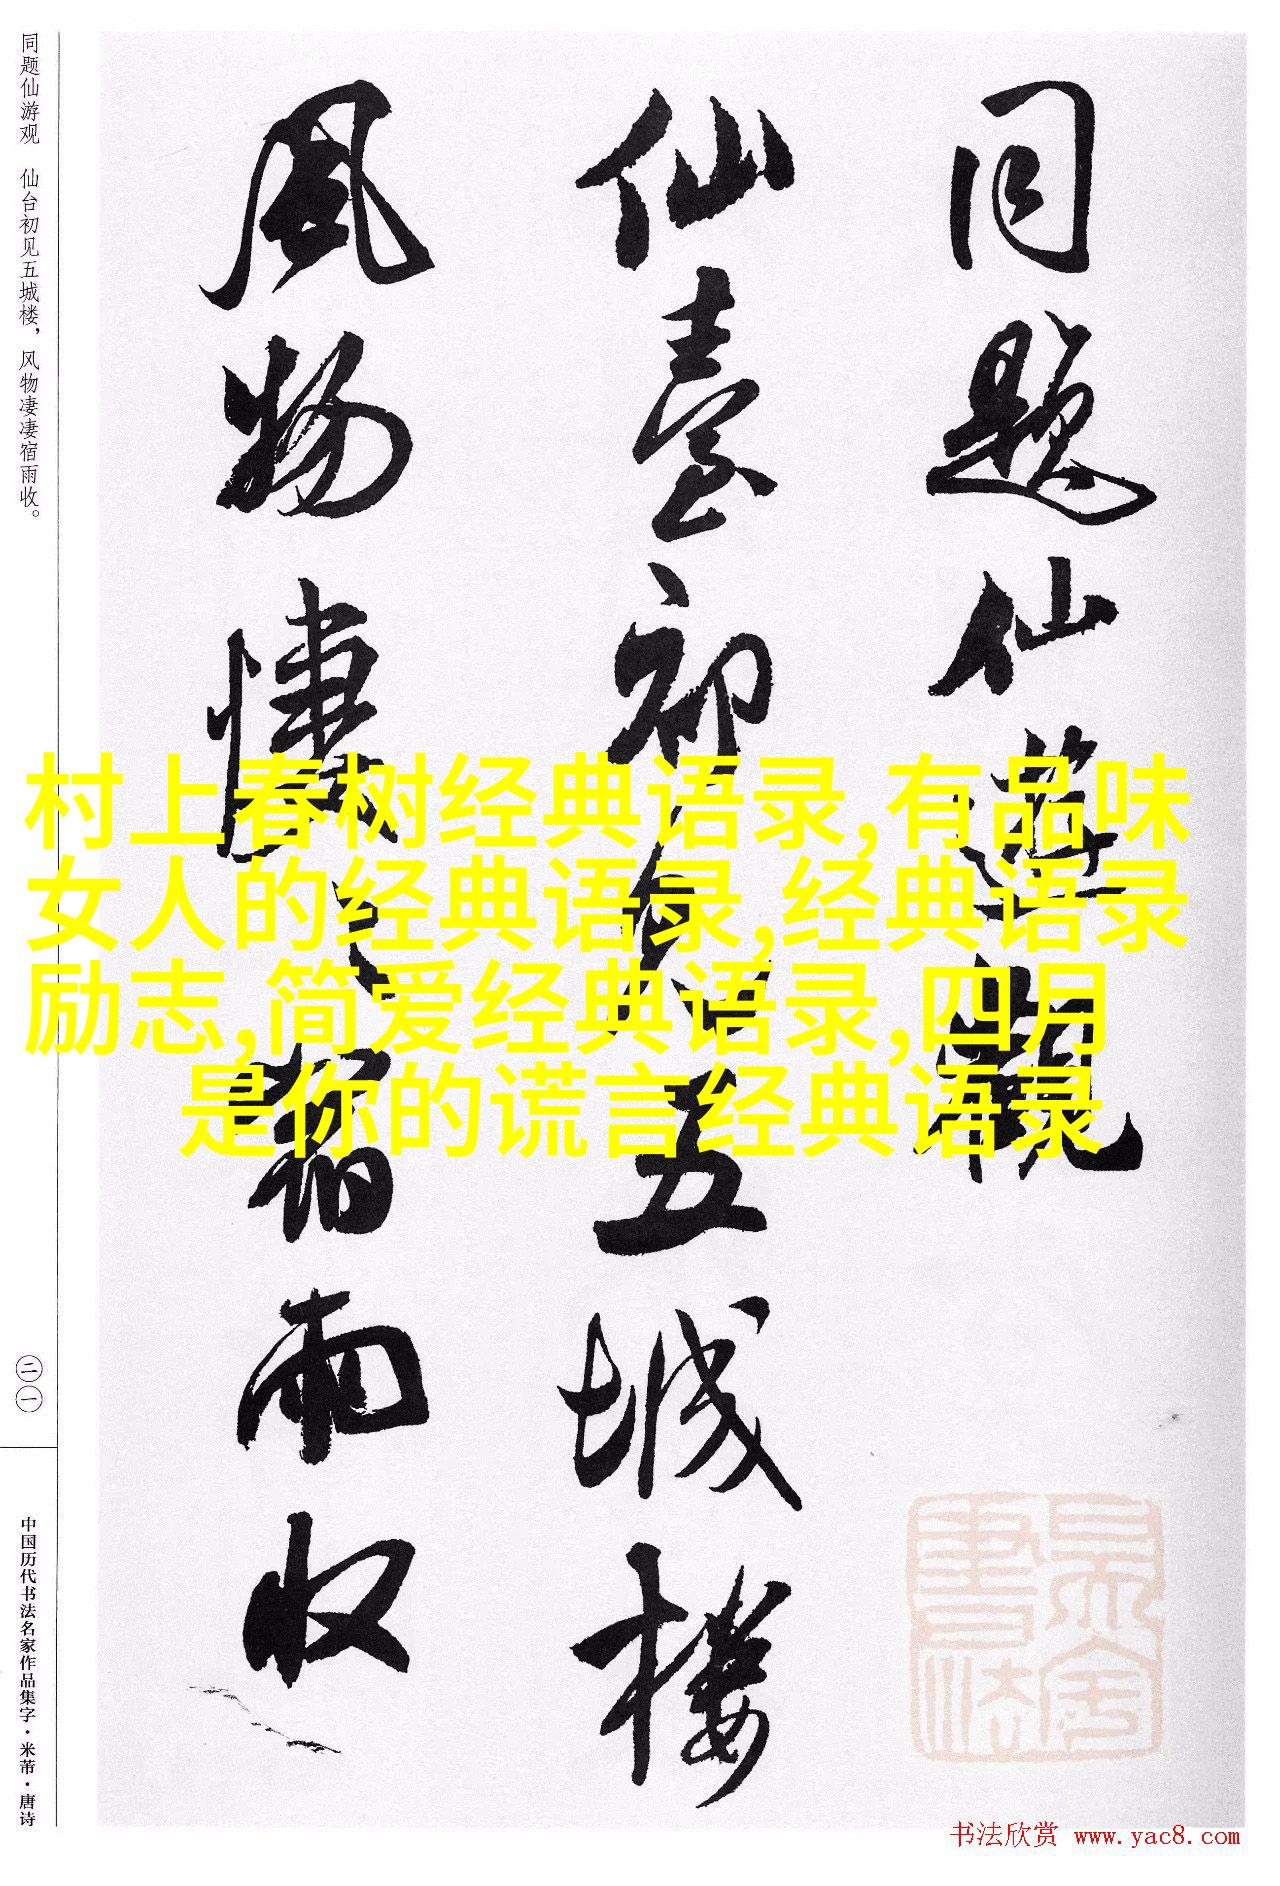 同题仙游观 仙台初见五城楼，风物凄凄宿雨收。
二一
中国历代书法名家作品集字·米芾·唐诗
同題仙遊觀
仙臺初見五城樓
風物悽〻宿雨收
村上春树经典语录,有品味
女人的经典语录,经典语录
励志,简爱经典语录,四月
是你的谎言经典语录
书法欣赏 www.yac8.com